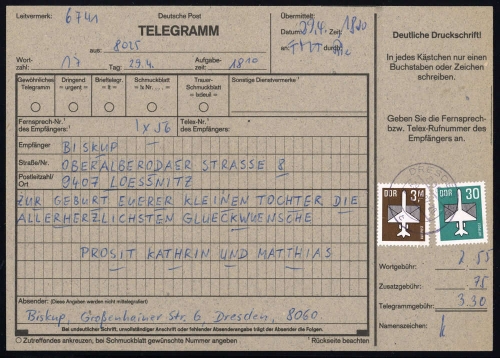 Leitvermerk: 6741
Deutsche Post
TELEGRAMM
Übermittelt:
Datum: 29.4. Zeit: 1820
aus: 8025
an: durch:
Wort-
zahl: 17 Tag: 29.4. Aufgabe-
zeit: 1810
Gewöhnliches
Telegramm
Dringend
= urgent =
Brieftelegr.
= lt =
Schmuckblatt
= lx Nr. ... =
Trauer-
Schmuckblatt
= lxdeuil =
Sonstige Dienstvermerke¹
Fernsprech-Nr.¹
des Empfängers: 1 x 56
Telex-Nr.¹
des Empfängers:
Empfänger BISKUP
Straße/Nr. OBERALBERODAER STRASSE 8
Postleitzahl/
Ort 9407 LOESSNITZ
ZUR GEBURT EUERER KLEINEN TOCHTER DIE
ALLERHERZLICHSTEN GLUECKWUENSCHE
PROSIT KATHRIN UND MATTHIAS
Absender: (Diese Angaben werden nicht mittelegrafiert)
Biskup, Großenhainer Str. 6, Dresden, 8060
Bei undeutlicher Schrift, unvollständiger Anschrift oder fehlender Absenderangabe trägt der Absender die Folgen.
Zutreffendes ankreuzen, bei Schmuckblatt gewünschte Nummer angeben
¹ Rückseite beachten
Deutliche Druckschrift!
In jedes Kästchen nur einen
Buchstaben oder Zeichen
schreiben.
Geben Sie die Fernsprech-
bzw. Telex-Rufnummer des
Empfängers an.
DDR 3M
DDR 30
Wortgebühr: 2 55
Zusatzgebühr: 75
Telegrammgebühr: 3.30
Namenszeichen: